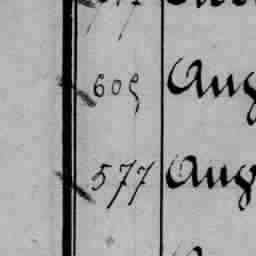 605 Aug
577 Aug